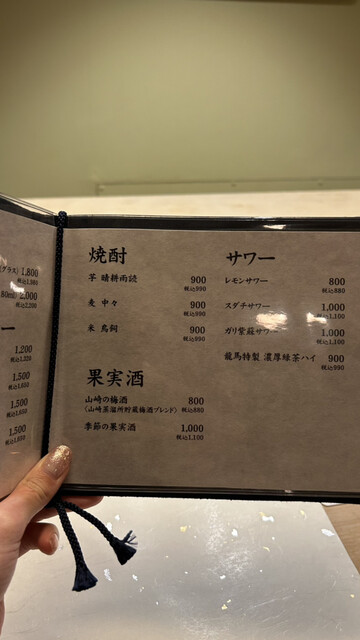 グラス) 1,800
税込1,980
80ml) 2,000
税込2,200
ー
1,200
税込1,320
1,500
税込1,650
1,500
税込1,650
1,500
税込1,650
焼酎
芋 晴耕雨読 900
税込990
麦 中々 900
税込990
米 鳥飼 900
税込990
果実酒
山崎の梅酒 800
(山崎蒸溜所貯蔵梅酒ブレンド) 税込880
季節の果実酒 1,000
税込1,100
サワー
レモンサワー 800
税込880
スダチサワー 1,000
税込1,100
ガリ紫蘇サワー 1,000
税込1,100
龍馬特製 濃厚緑茶ハイ 900
税込990